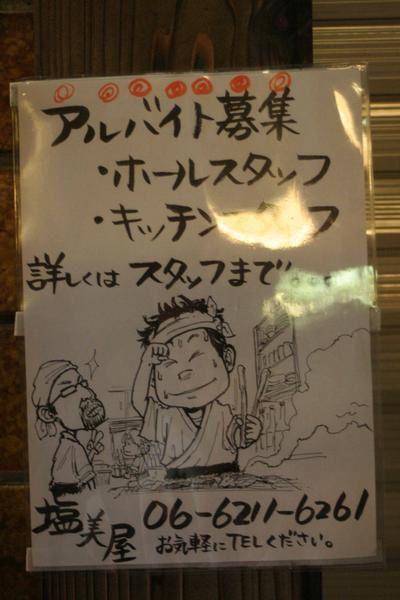 アルバイト募集
・ホールスタッフ
・キッチンスタッフ
詳しくは スタッフまで…。
塩美屋 06-6211-6261
お気軽にTELください。